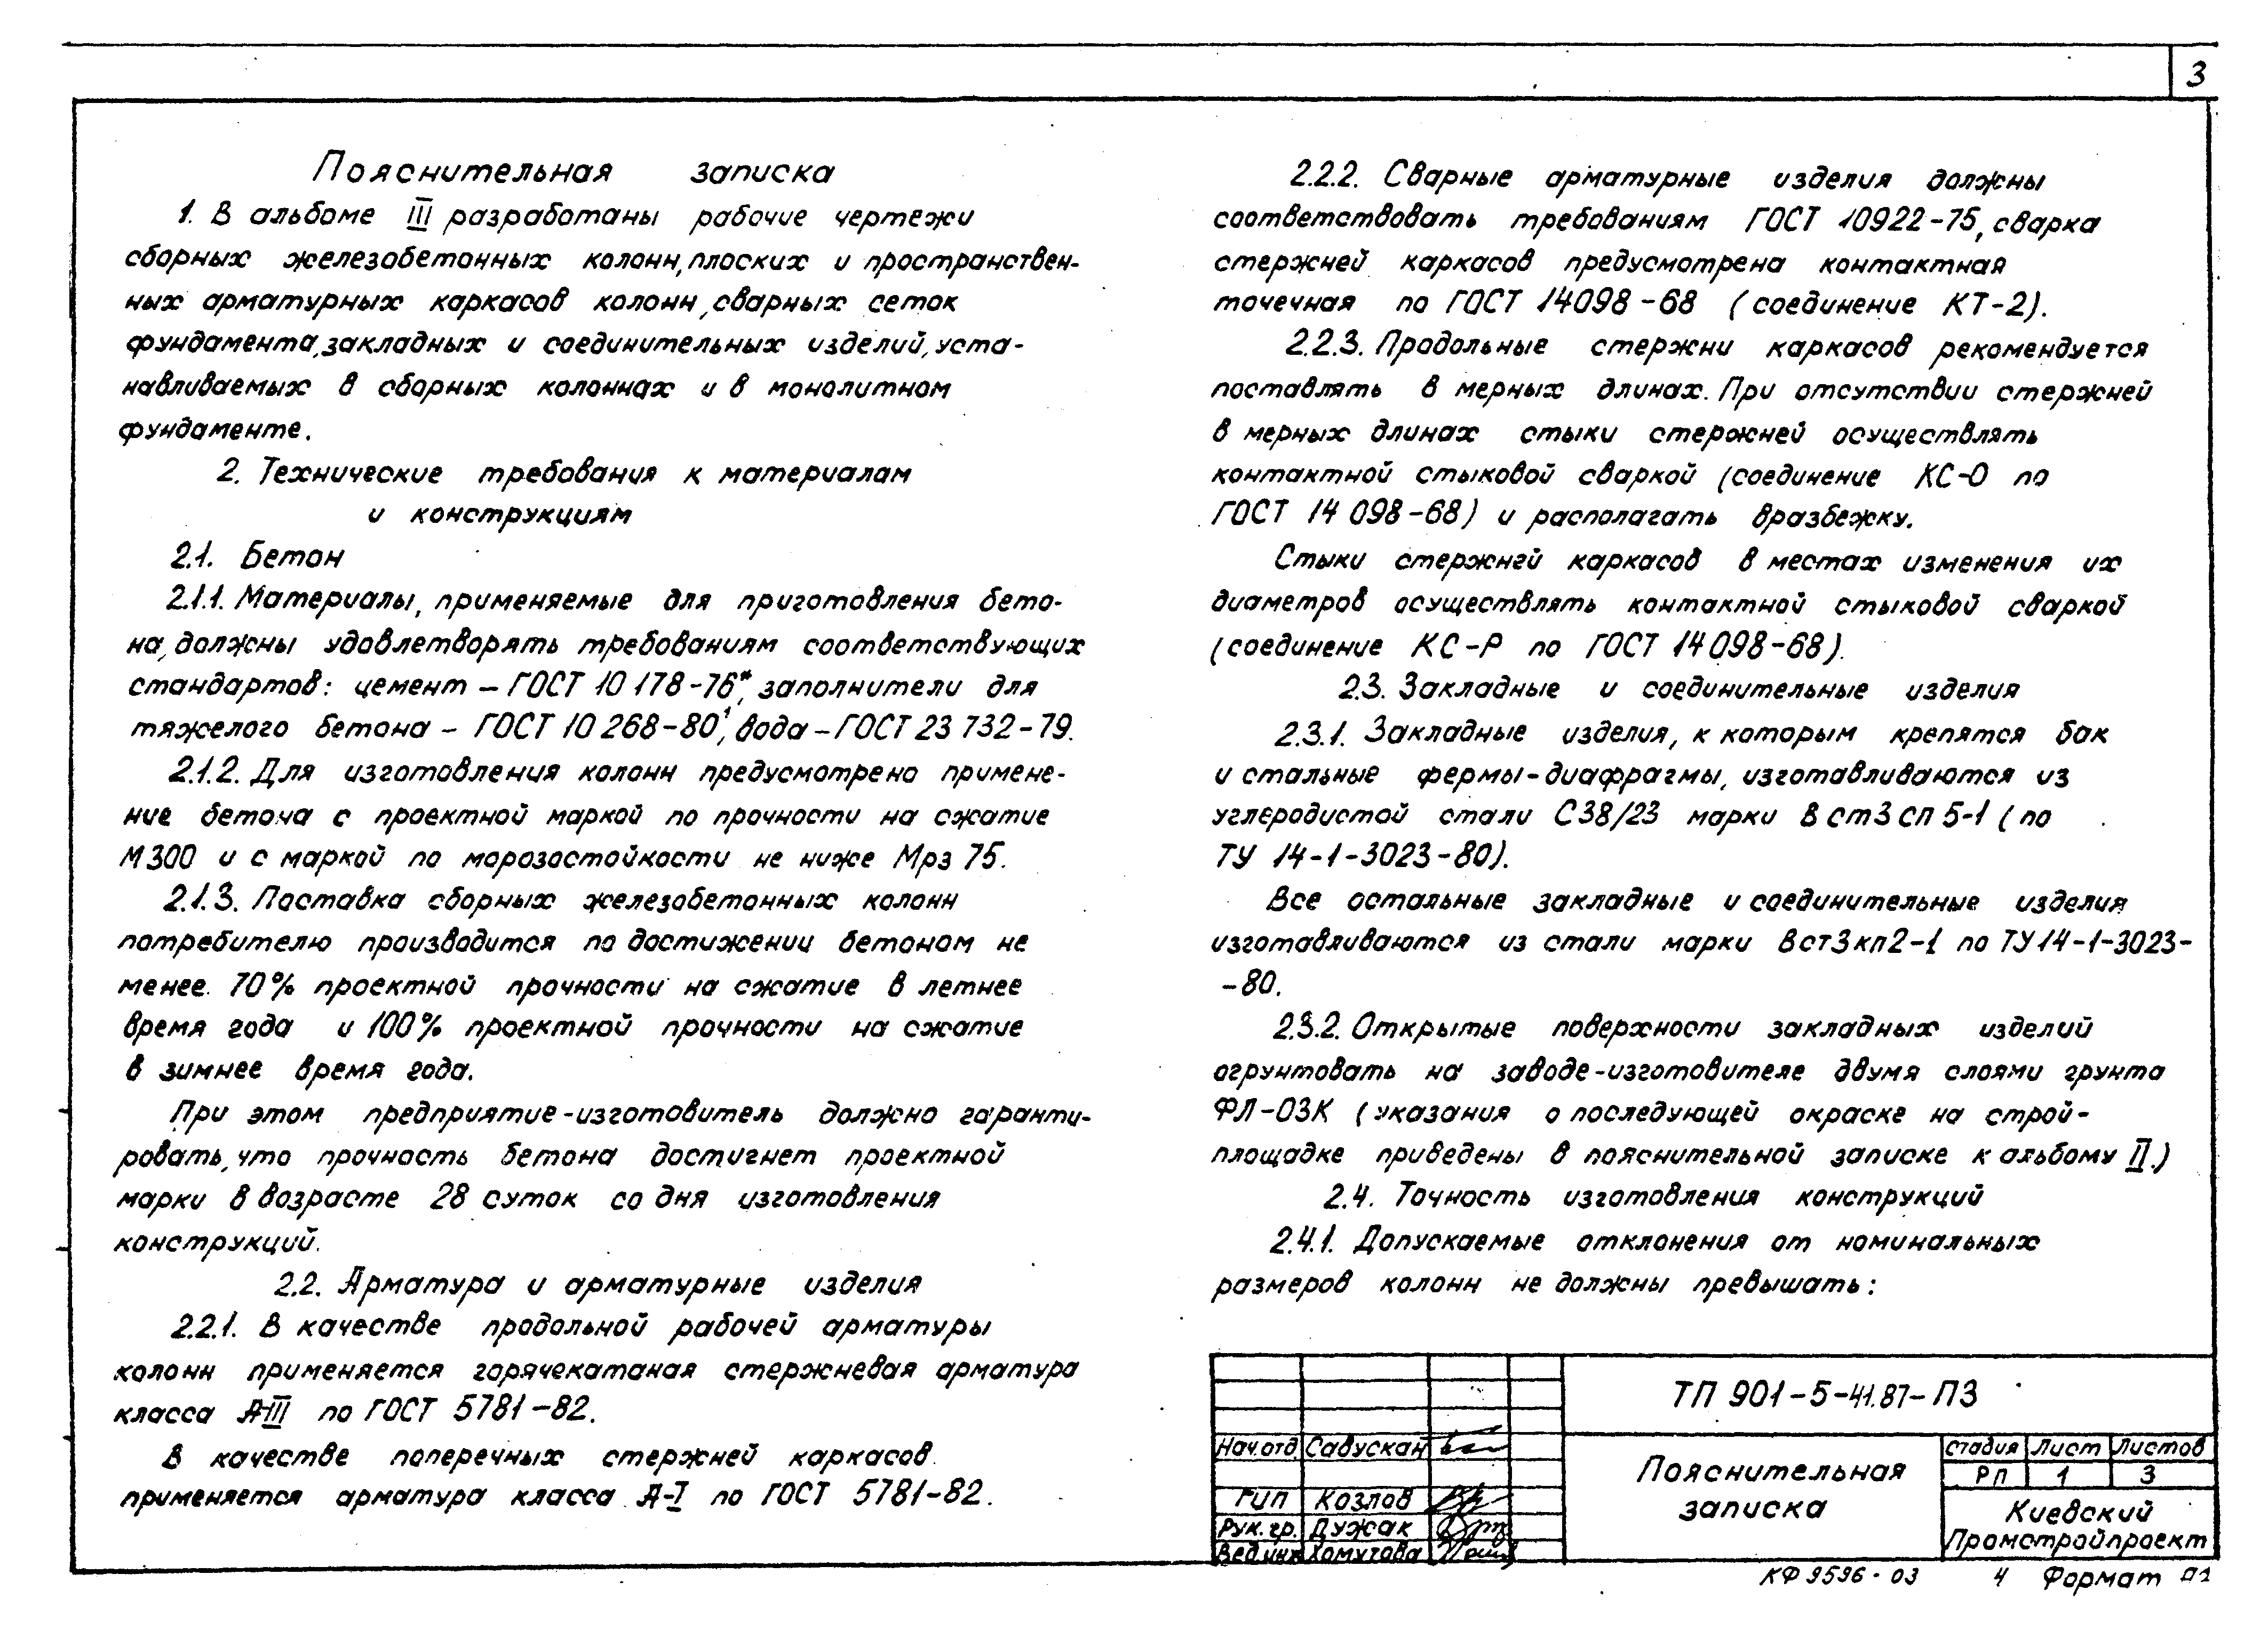 3
Пояснительная записка
1. В альбоме III разработаны рабочие чертежи
сборных железобетонных колонн, плоских и пространствен-
ных арматурных каркасов колонн, сварных сеток
фундамента, закладных и соединительных изделий, уста-
навливаемых в сборных колоннах и в монолитном
фундаменте.
2. Технические требования к материалам
и конструкциям
2.1. Бетон
2.1.1. Материалы, применяемые для приготовления бето-
на, должны удовлетворять требованиям соответствующих
стандартов: цемент – ГОСТ 10 178-76*, заполнители для
тяжелого бетона – ГОСТ 10 268-80, вода – ГОСТ 23 732-79.
2.1.2. Для изготовления колонн предусмотрено примене-
ние бетона с проектной маркой по прочности на сжатие
М300 и с маркой по морозостойкости не ниже Мрз 75.
2.1.3. Поставка сборных железобетонных колонн
потребителю производится по достижении бетоном не
менее 70% проектной прочности на сжатие в летнее
время года и 100% проектной прочности на сжатие
в зимнее время года.
При этом предприятие-изготовитель должно гаранти-
ровать, что прочность бетона достигнет проектной
марки в возрасте 28 суток со дня изготовления
конструкций.
2.2. Арматура и арматурные изделия
2.2.1. В качестве продольной рабочей арматуры
колонн применяется горячекатаная стержневая арматура
класса А-III по ГОСТ 5781-82.
В качестве поперечных стержней каркасов
применяется арматура класса А-I по ГОСТ 5781-82.
2.2.2. Сварные арматурные изделия должны
соответствовать требованиям ГОСТ 10922-75, сварка
стержней каркасов предусмотрена контактная
точечная по ГОСТ 14098-68 (соединение КТ-2).
2.2.3. Продольные стержни каркасов рекомендуется
поставлять в мерных длинах. При отсутствии стержней
в мерных длинах стыки стержней осуществлять
контактной стыковой сваркой (соединение КС-О по
ГОСТ 14 098-68) и располагать вразбежку.
Стыки стержней каркасов в местах изменения их
диаметров осуществлять контактной стыковой сваркой
(соединение КС-Р по ГОСТ 14 098-68).
2.3. Закладные и соединительные изделия
2.3.1. Закладные изделия, к которым крепятся бак
и стальные фермы-диафрагмы, изготавливаются из
углеродистой стали С38/23 марки В ст3 сп 5-1 (по
ТУ 14-1-3023-80).
Все остальные закладные и соединительные изделия
изготавливаются из стали марки Вст3кп2-1 по ТУ14-1-3023-
-80.
2.3.2. Открытые поверхности закладных изделий
огрунтовать на заводе-изготовителе двумя слоями грунта
ФЛ-03К (указания о последующей окраске на строй-
площадке приведены в пояснительной записке к альбому II.)
2.4. Точность изготовления конструкций
2.4.1. Допускаемые отклонения от номинальных
размеров колонн не должны превышать:
ТП 901-5-41.87-ПЗ
Нач.отд. Савускан
ГИП Козлов
Рук. гр. Дужак
Вед.инж Хомутова
Пояснительная
записка
Стадия Лист Листов
РП 1 3
Киевский
Промстройпроект
КФ 9596-03 4 Формат